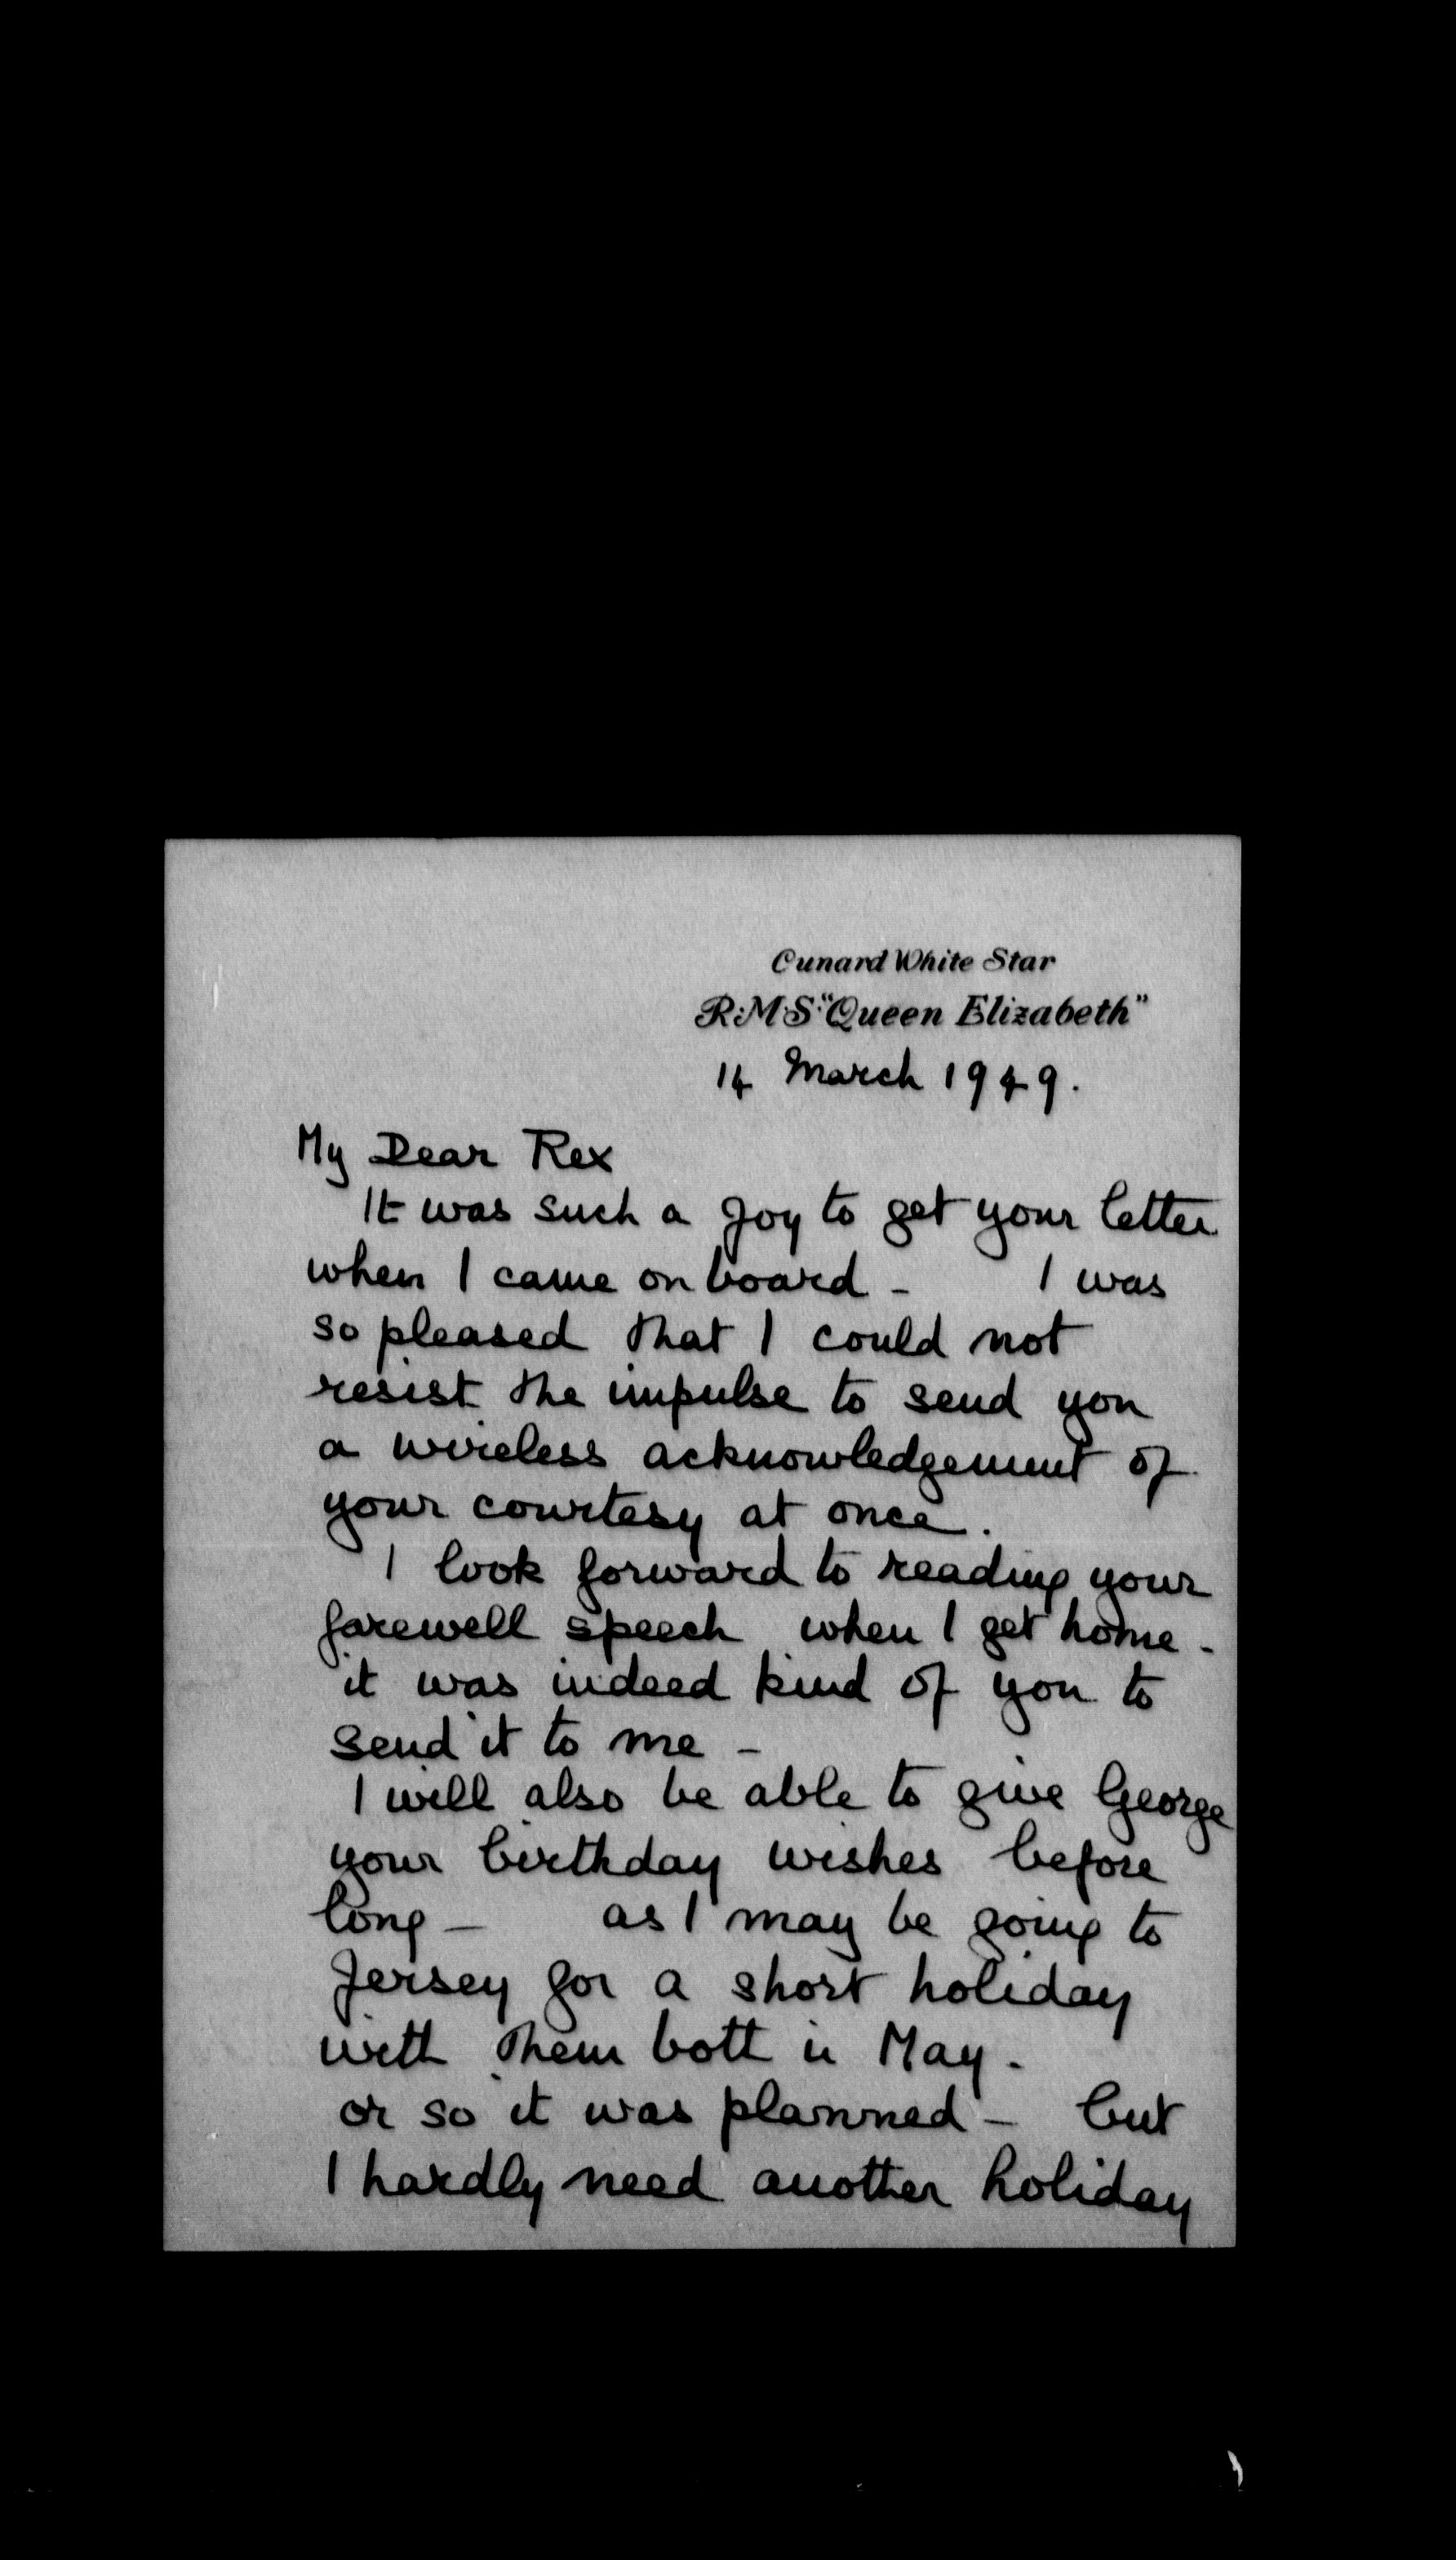 Cunard White Star
R.M.S. "Queen Elizabeth"
14 March 1949.
My Dear Rex
It was such a joy to get your letter
when I came on board - I was
so pleased that I could not
resist the impulse to send you
a wireless acknowledgement of
your courtesy at once.
I look forward to reading your
farewell speech when I get home -
it was indeed kind of you to
send it to me -
I will also be able to give George
your birthday wishes before
long - as I may be going to
Jersey for a short holiday
with them both in May -
or so it was planned - but
I hardly need another holiday